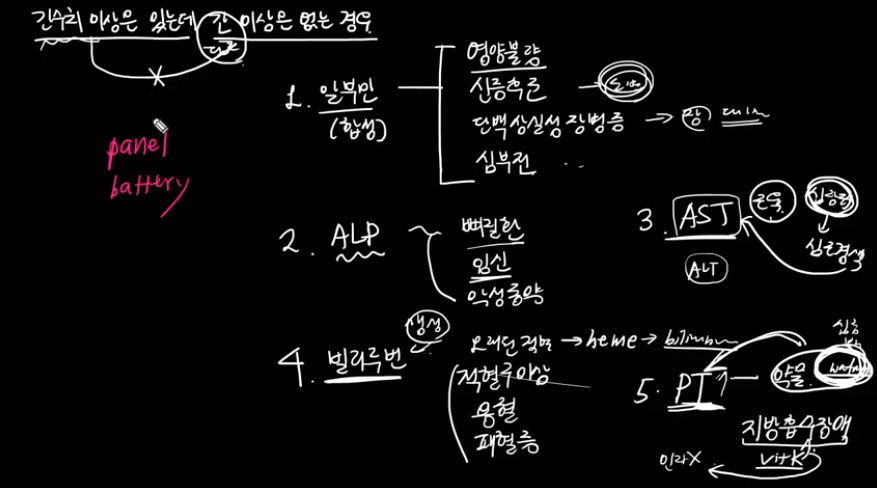 간수치 이상은 있는데 간 이상은 없는 경우
panel
battery
1. 알부민
(합성)
영양불량
신증후군
단백상실성 장병증 → 장
심부전 ..
2. ALP
뼈질환
임신
악성종양
3. AST
근육
심근경색
ALT
4. 빌리루빈
생성
→ heme →
적혈구 이상
용혈
패혈증
5. PT↑
약물
지방흡수장애
Vit K